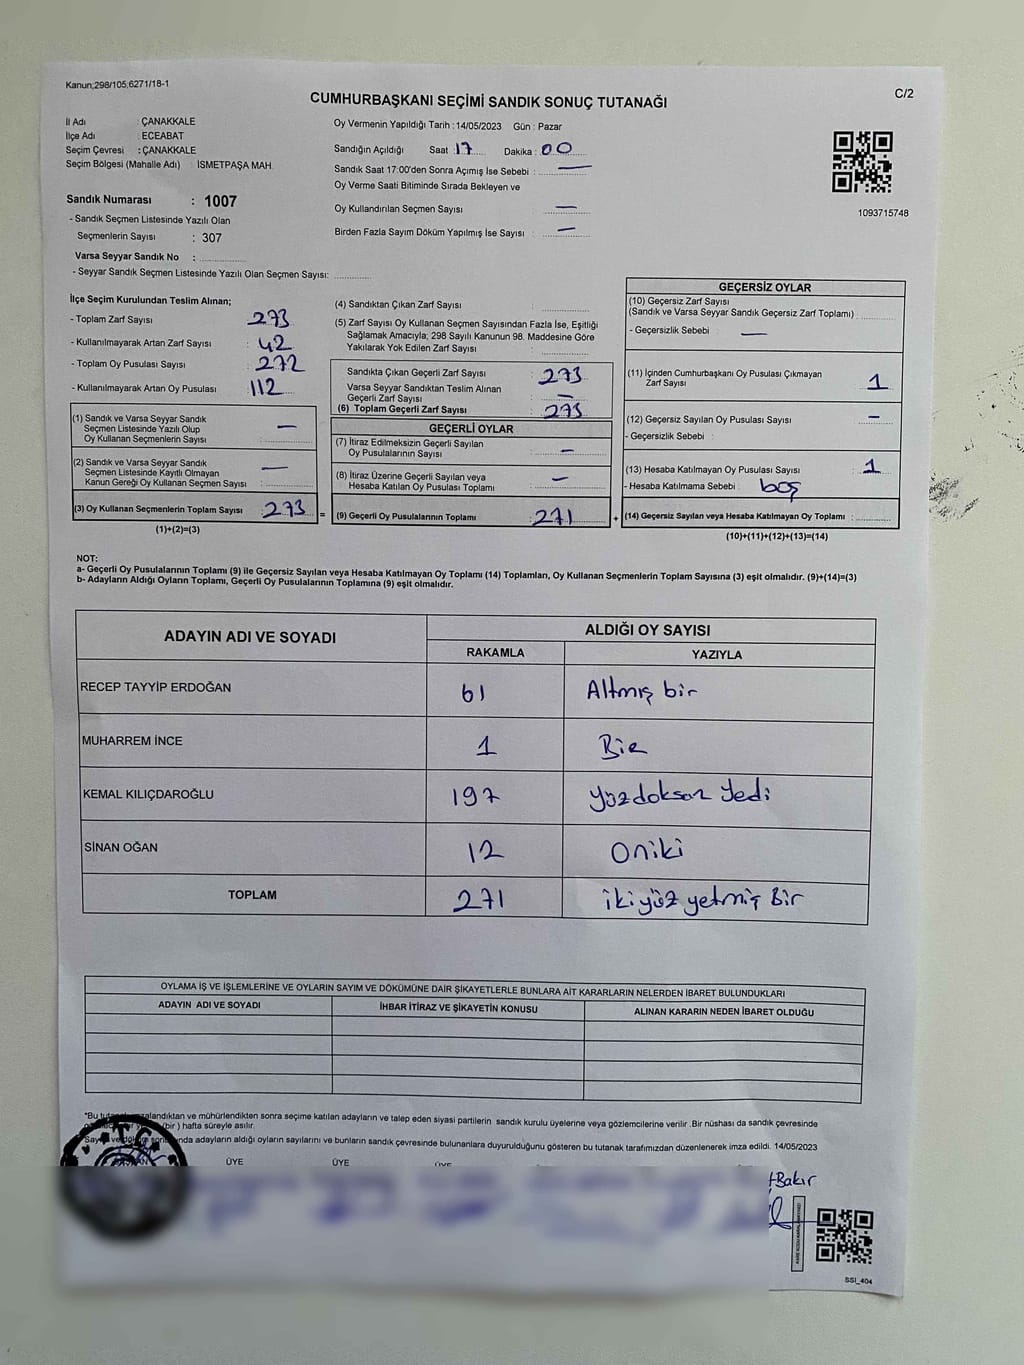 Kanun;298/105;6271/18-1
C/2
CUMHURBAŞKANI SEÇİMİ SANDIK SONUÇ TUTANAĞI
İl Adı : ÇANAKKALE
İlçe Adı : ECEABAT
Seçim Çevresi : ÇANAKKALE
Seçim Bölgesi (Mahalle Adı) : İSMETPAŞA MAH.
Sandık Numarası : 1007
- Sandık Seçmen Listesinde Yazılı Olan
Seçmenlerin Sayısı : 307
Varsa Seyyar Sandık No :
- Seyyar Sandık Seçmen Listesinde Yazılı Olan Seçmen Sayısı:
Oy Vermenin Yapıldığı Tarih : 14/05/2023 Gün : Pazar
Sandığın Açıldığı Saat : 17 Dakika : 00
Sandık Saat 17:00'den Sonra Açımış İse Sebebi : —
Oy Verme Saati Bitiminde Sırada Bekleyen ve
Oy Kullandırılan Seçmen Sayısı —
Birden Fazla Sayım Döküm Yapılmış İse Sayısı : —
1093715748
İlçe Seçim Kurulundan Teslim Alınan;
- Toplam Zarf Sayısı : 273
- Kullanılmayarak Artan Zarf Sayısı : 42
- Toplam Oy Pusulası Sayısı : 272
- Kullanılmayarak Artan Oy Pusulası : 112
(1) Sandık ve Varsa Seyyar Sandık
Seçmen Listesinde Yazılı Olup
Oy Kullanan Seçmenlerin Sayısı : —
(2) Sandık ve Varsa Seyyar Sandık
Seçmen Listesinde Kayıtlı Olmayan
Kanun Gereği Oy Kullanan Seçmen Sayısı : —
(3) Oy Kullanan Seçmenlerin Toplam Sayısı : 273
(1)+(2)=(3)
(4) Sandıktan Çıkan Zarf Sayısı :
(5) Zarf Sayısı Oy Kullanan Seçmen Sayısından Fazla İse, Eşitliği
Sağlamak Amacıyla; 298 Sayılı Kanunun 98. Maddesine Göre
Yakılarak Yok Edilen Zarf Sayısı :
Sandıkta Çıkan Geçerli Zarf Sayısı : 273
Varsa Seyyar Sandıktan Teslim Alınan
Geçerli Zarf Sayısı : —
(6) Toplam Geçerli Zarf Sayısı : 273
GEÇERLİ OYLAR
(7) İtiraz Edilmeksizin Geçerli Sayılan
Oy Pusulalarının Sayısı : —
(8) İtiraz Üzerine Geçerli Sayılan veya
Hesaba Katılan Oy Pusulası Toplamı : —
= (9) Geçerli Oy Pusulalarının Toplamı : 271
GEÇERSİZ OYLAR
(10) Geçersiz Zarf Sayısı
(Sandık ve Varsa Seyyar Sandık Geçersiz Zarf Toplamı)
- Geçersizlik Sebebi : —
(11) İçinden Cumhurbaşkanı Oy Pusulası Çıkmayan
Zarf Sayısı : 1
(12) Geçersiz Sayılan Oy Pusulası Sayısı : —
- Geçersizlik Sebebi :
(13) Hesaba Katılmayan Oy Pusulası Sayısı : 1
- Hesaba Katılmama Sebebi : boş
+ (14) Geçersiz Sayılan veya Hesaba Katılmayan Oy Toplamı :
(10)+(11)+(12)+(13)=(14)
NOT:
a- Geçerli Oy Pusulalarının Toplamı (9) ile Geçersiz Sayılan veya Hesaba Katılmayan Oy Toplamı (14) Toplamları, Oy Kullanan Seçmenlerin Toplam Sayısına (3) eşit olmalıdır. (9)+(14)=(3)
b- Adayların Aldığı Oyların Toplamı, Geçerli Oy Pusulalarının Toplamına (9) eşit olmalıdır.
ADAYIN ADI VE SOYADI ALDIĞI OY SAYISI
RAKAMLA YAZIYLA
RECEP TAYYİP ERDOĞAN 61 Altmış bir
MUHARREM İNCE 1 Bir
KEMAL KILIÇDAROĞLU 197 Yüzdoksan Yedi
SİNAN OĞAN 12 Oniki
TOPLAM 271 ikiyüz yetmiş Bir
OYLAMA İŞ VE İŞLEMLERİNE VE OYLARIN SAYIM VE DÖKÜMÜNE DAİR ŞİKAYETLERLE BUNLARA AİT KARARLARIN NELERDEN İBARET BULUNDUKLARI
ADAYIN ADI VE SOYADI İHBAR İTİRAZ VE ŞİKAYETİN KONUSU ALINAN KARARIN NEDEN İBARET OLDUĞU
*Bu zalandıktan ve mühürlendikten sonra seçime katılan adayların ve talep eden siyasi partilerin sandık kurulu üyelerine veya gözlemcilerine verilir .Bir nüshası da sandık çevresinde
(bir ) hafta süreyle asılır.
nda adayların aldığı oyların sayılarını ve bunların sandık çevresinde bulunanlara duyurulduğunu gösteren bu tutanak tarafımızdan düzenlenerek imza edildi. 14/05/2023
ÜYE ÜYE ÜYE
Bakır
SSI_404